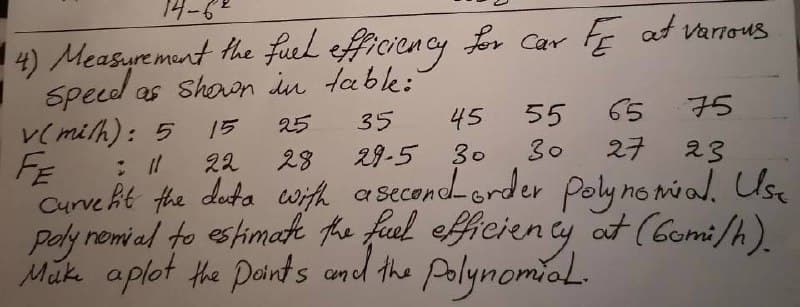 14-6²
4) Measurement the fuel efficiency for car FE at various
speed as shown in table:
v(mi/h): 5 15 25 35 45 55 65 75
FE : 11 22 28 29.5 30 30 27 23
Curve fit the data with a second-order polynomial. Use
polynomial to estimate the fuel efficiency at (60mi/h).
Make a plot the points and the polynomial.